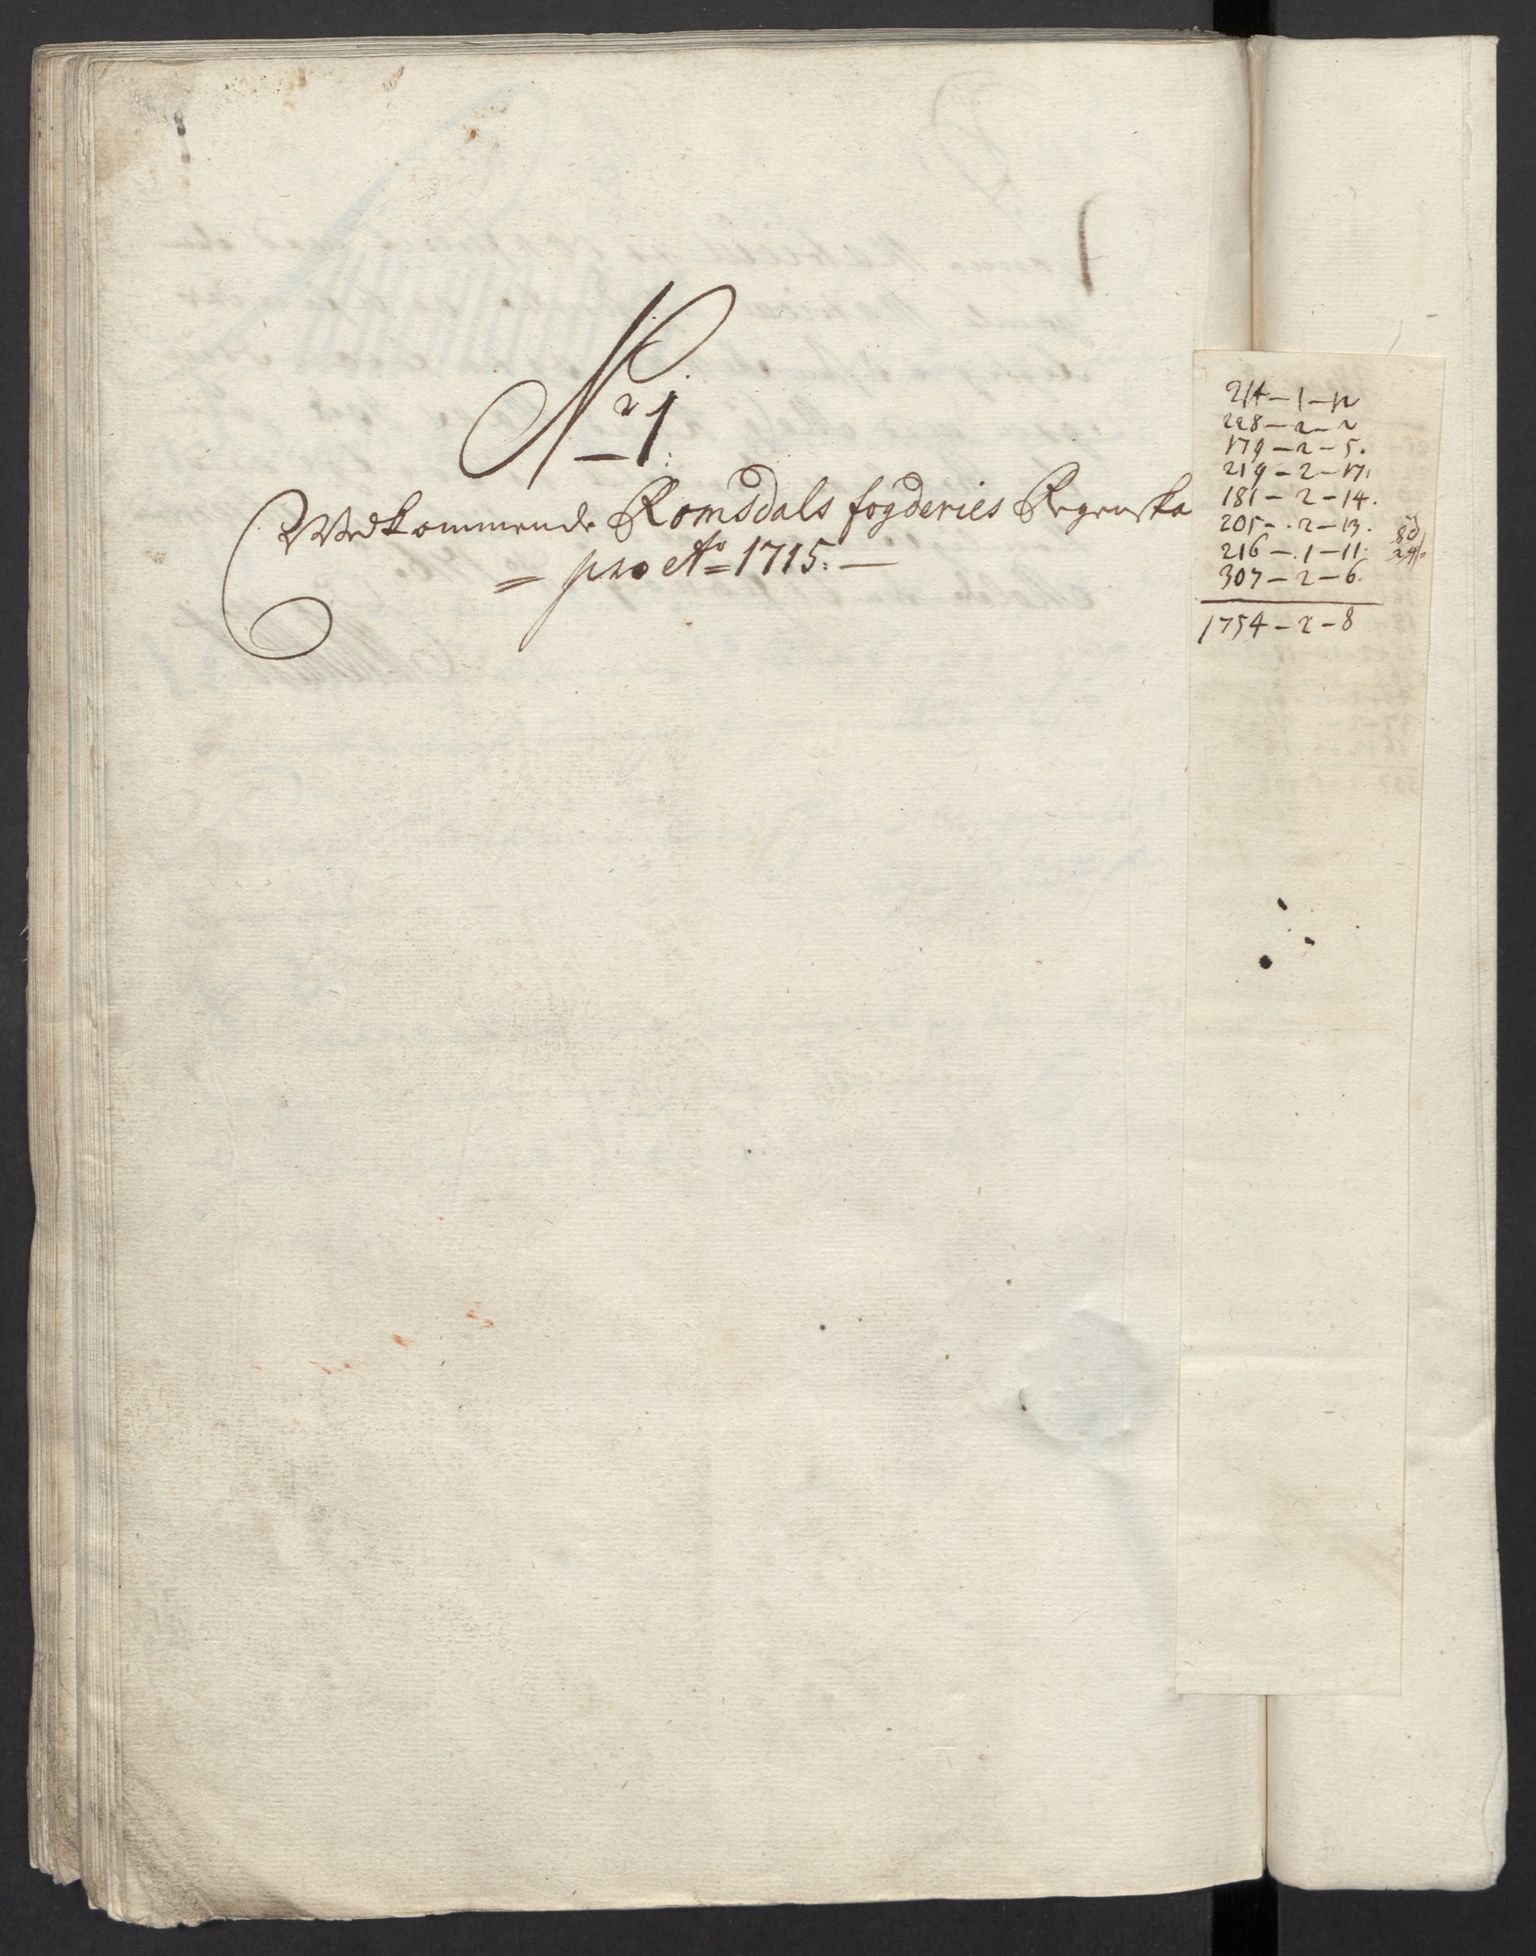 Nr 1.
Vedkommende Romsdals fogderies Regenska
= pro Ao = 1715. —
214 — 1 — 12
228 — 2 — 2
179 — 2 — 5.
219 — 2 — 17.
181 — 2 — 14.
205 — 2 — 13.
216 — 1 — 11.
307 — 2 — 6.
1754 — 2 — 8